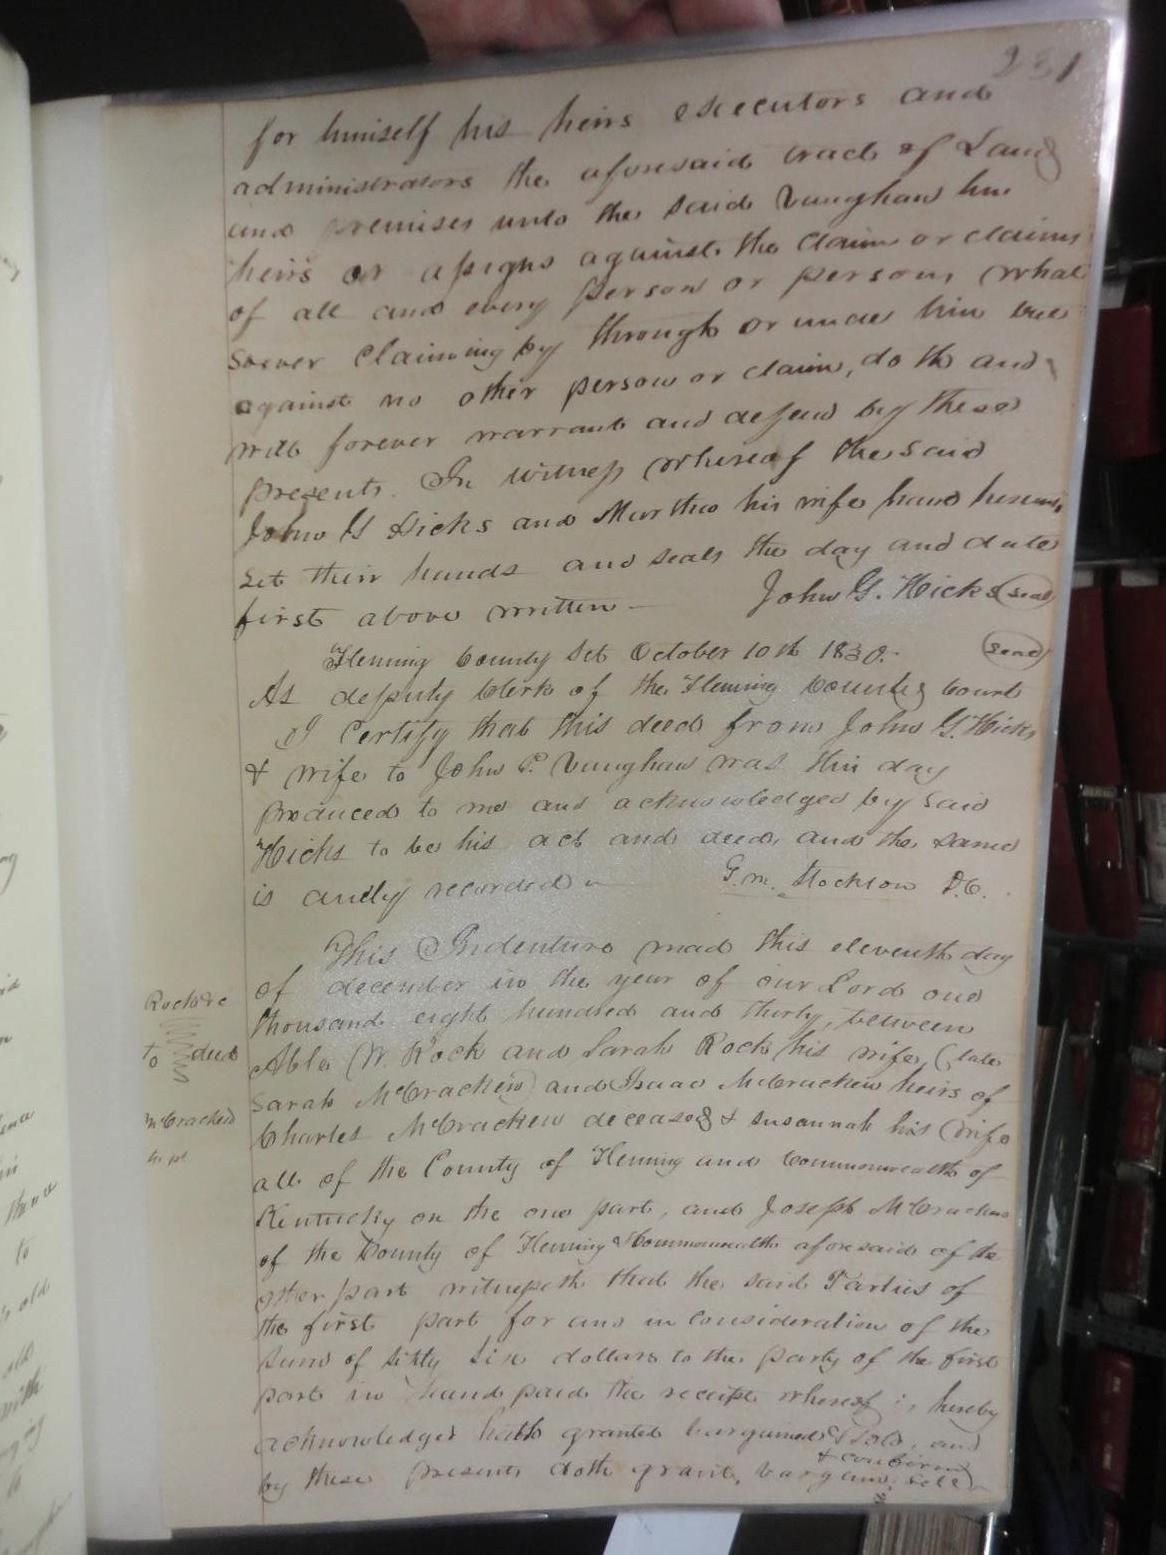 231
for himself his heirs executors and
administrators the aforesaid tract of Land
and premises unto the said Vaughan his
heirs or assigns against the claim or claims
of all and every person or persons what
soever claiming by through or under him but
against no other person or claim, doth and
will forever warrant and defend by these
presents. In witness whereof the said
John G Hicks and Martha his wife have hereunto
set their hands and seals the day and date
first above written — John G. Hicks (seal)
Fleming County Sct October 10th 1830. (seal)
As deputy Clerk of the Fleming County Court
I Certify that this deed from John G. Hicks
& wife to John P. Vaughan was this day
produced to me and acknowledged by said
Hicks to be his act and deed, and the same
is andly recorded G. M. Stockton D.C.
This Indenture mad this eleventh day
of december in the year of our Lord one
Rock &c
thousand eight hundred and thirty, between
to deed
Able W. Rock and Sarah Rock his wife, (late
Sarah McCracken) and Isaac McCracken heirs of
McCracken
Charles McCracken deceased & Susannah his wife
all of the County of Fleming and Commonwealth of
Kentucky on the one part, and Joseph McCracken
of the County of Fleming & Commonwealth aforesaid of the
other part witnesseth that the said Parties of
the first part for and in Consideration of the
Sum of sixty six dollars to the party of the first
part in hand paid the receipt whereof is hereby
acknowledged hath granted bargained & sold, and
& confirm
by these presents doth grant, bargain, sell